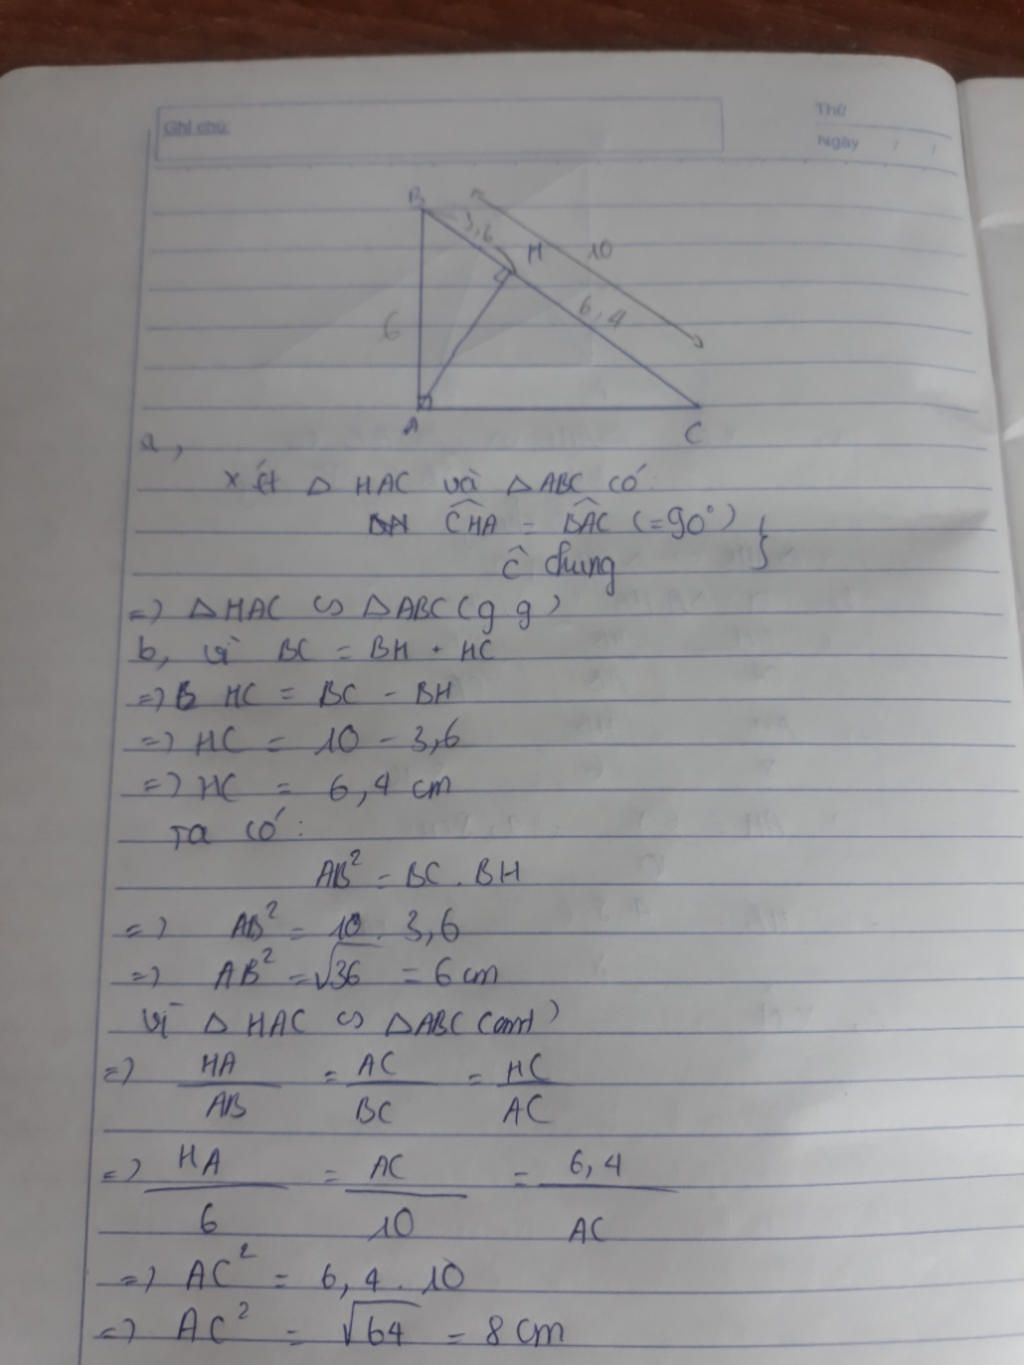 Ghi chú:
Thứ
Ngày / /
B
3,6
H
10
6
6,4
A
C
a,
Xét △ HAC và △ABC có:
CHA = BAC (=90°) }
Ĉ chung
=> △HAC ∽ △ABC (g.g)
b, vì BC = BH + HC
=> HC = BC - BH
=> HC = 10 - 3,6
=> HC = 6,4 cm
Ta có:
AB² = BC . BH
=> AB² = 10 . 3,6
=> AB² = √36 = 6 cm
Vì △ HAC ∽ △ABC (cmt)
=> HA/AB = AC/BC = HC/AC
=> HA/6 = AC/10 = 6,4/AC
=> AC² = 6,4 . 10
=> AC² = √64 = 8 cm